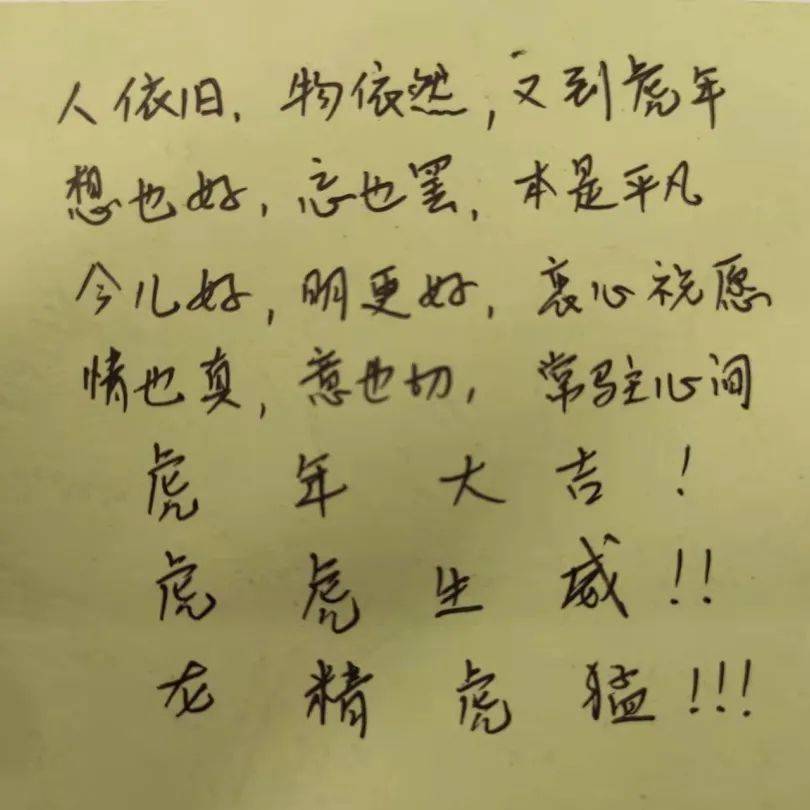 人依旧，物依然，又到虎年
想也好，忘也罢，本是平凡
今儿好，明更好，衷心祝愿
情也真，意也切，常驻心间
虎年大吉！
虎虎生威！！
龙精虎猛！！！